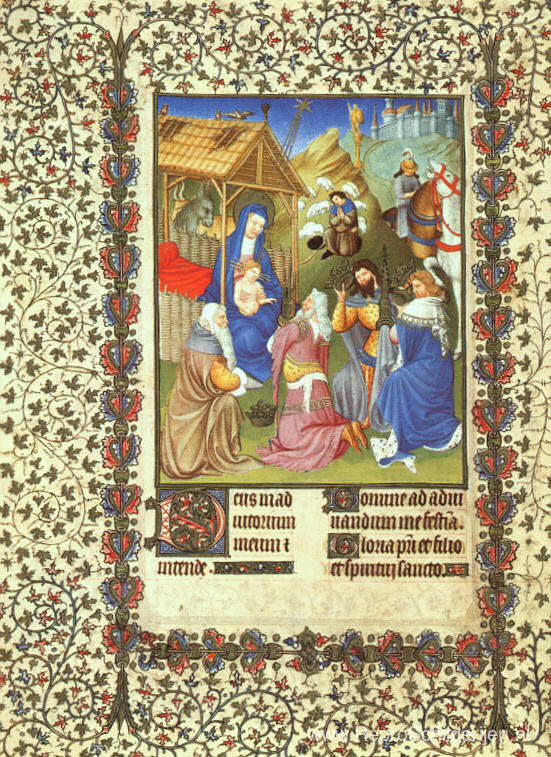 Deus in ad
iutorium
meum
intende.
Domine ad adiu
uandum me festia.
Gloria pri et filio
et spiritui sancto.
www.ReproSchilderijen.nl